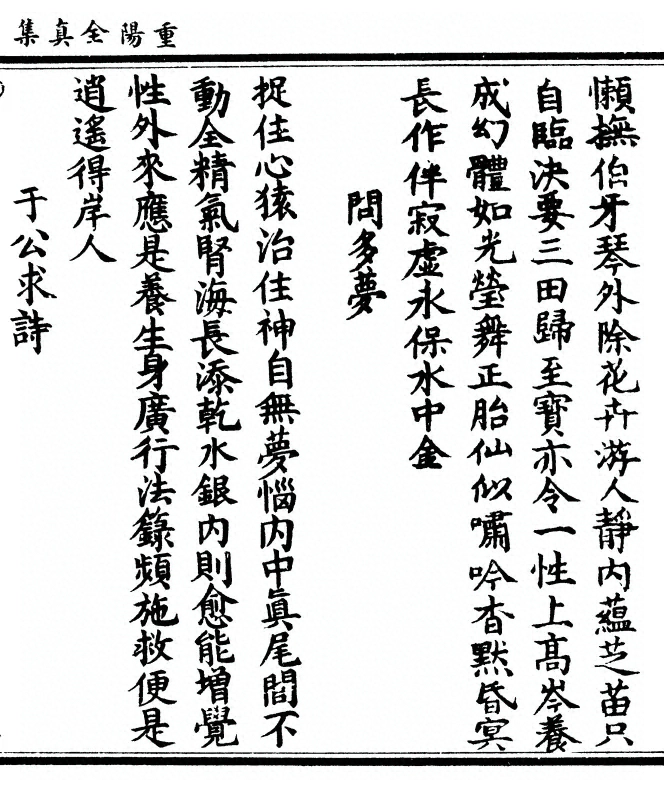 重陽全真集
懶撫伯牙琴外除花卉游人靜內蘊芝苗只
自臨決要三田歸至寶亦令一性上高岑養
成幻體如光瑩舞正胎仙似嘯吟杳默昏冥
長作伴寂虛永保水中金
問多夢
捉住心猿治住神自無夢惱內中眞尾閭不
動全精氣腎海長添乾水銀內則愈能增覺
性外來應是養生身廣行法籙頻施救便是
逍遙得岸人
于公求詩